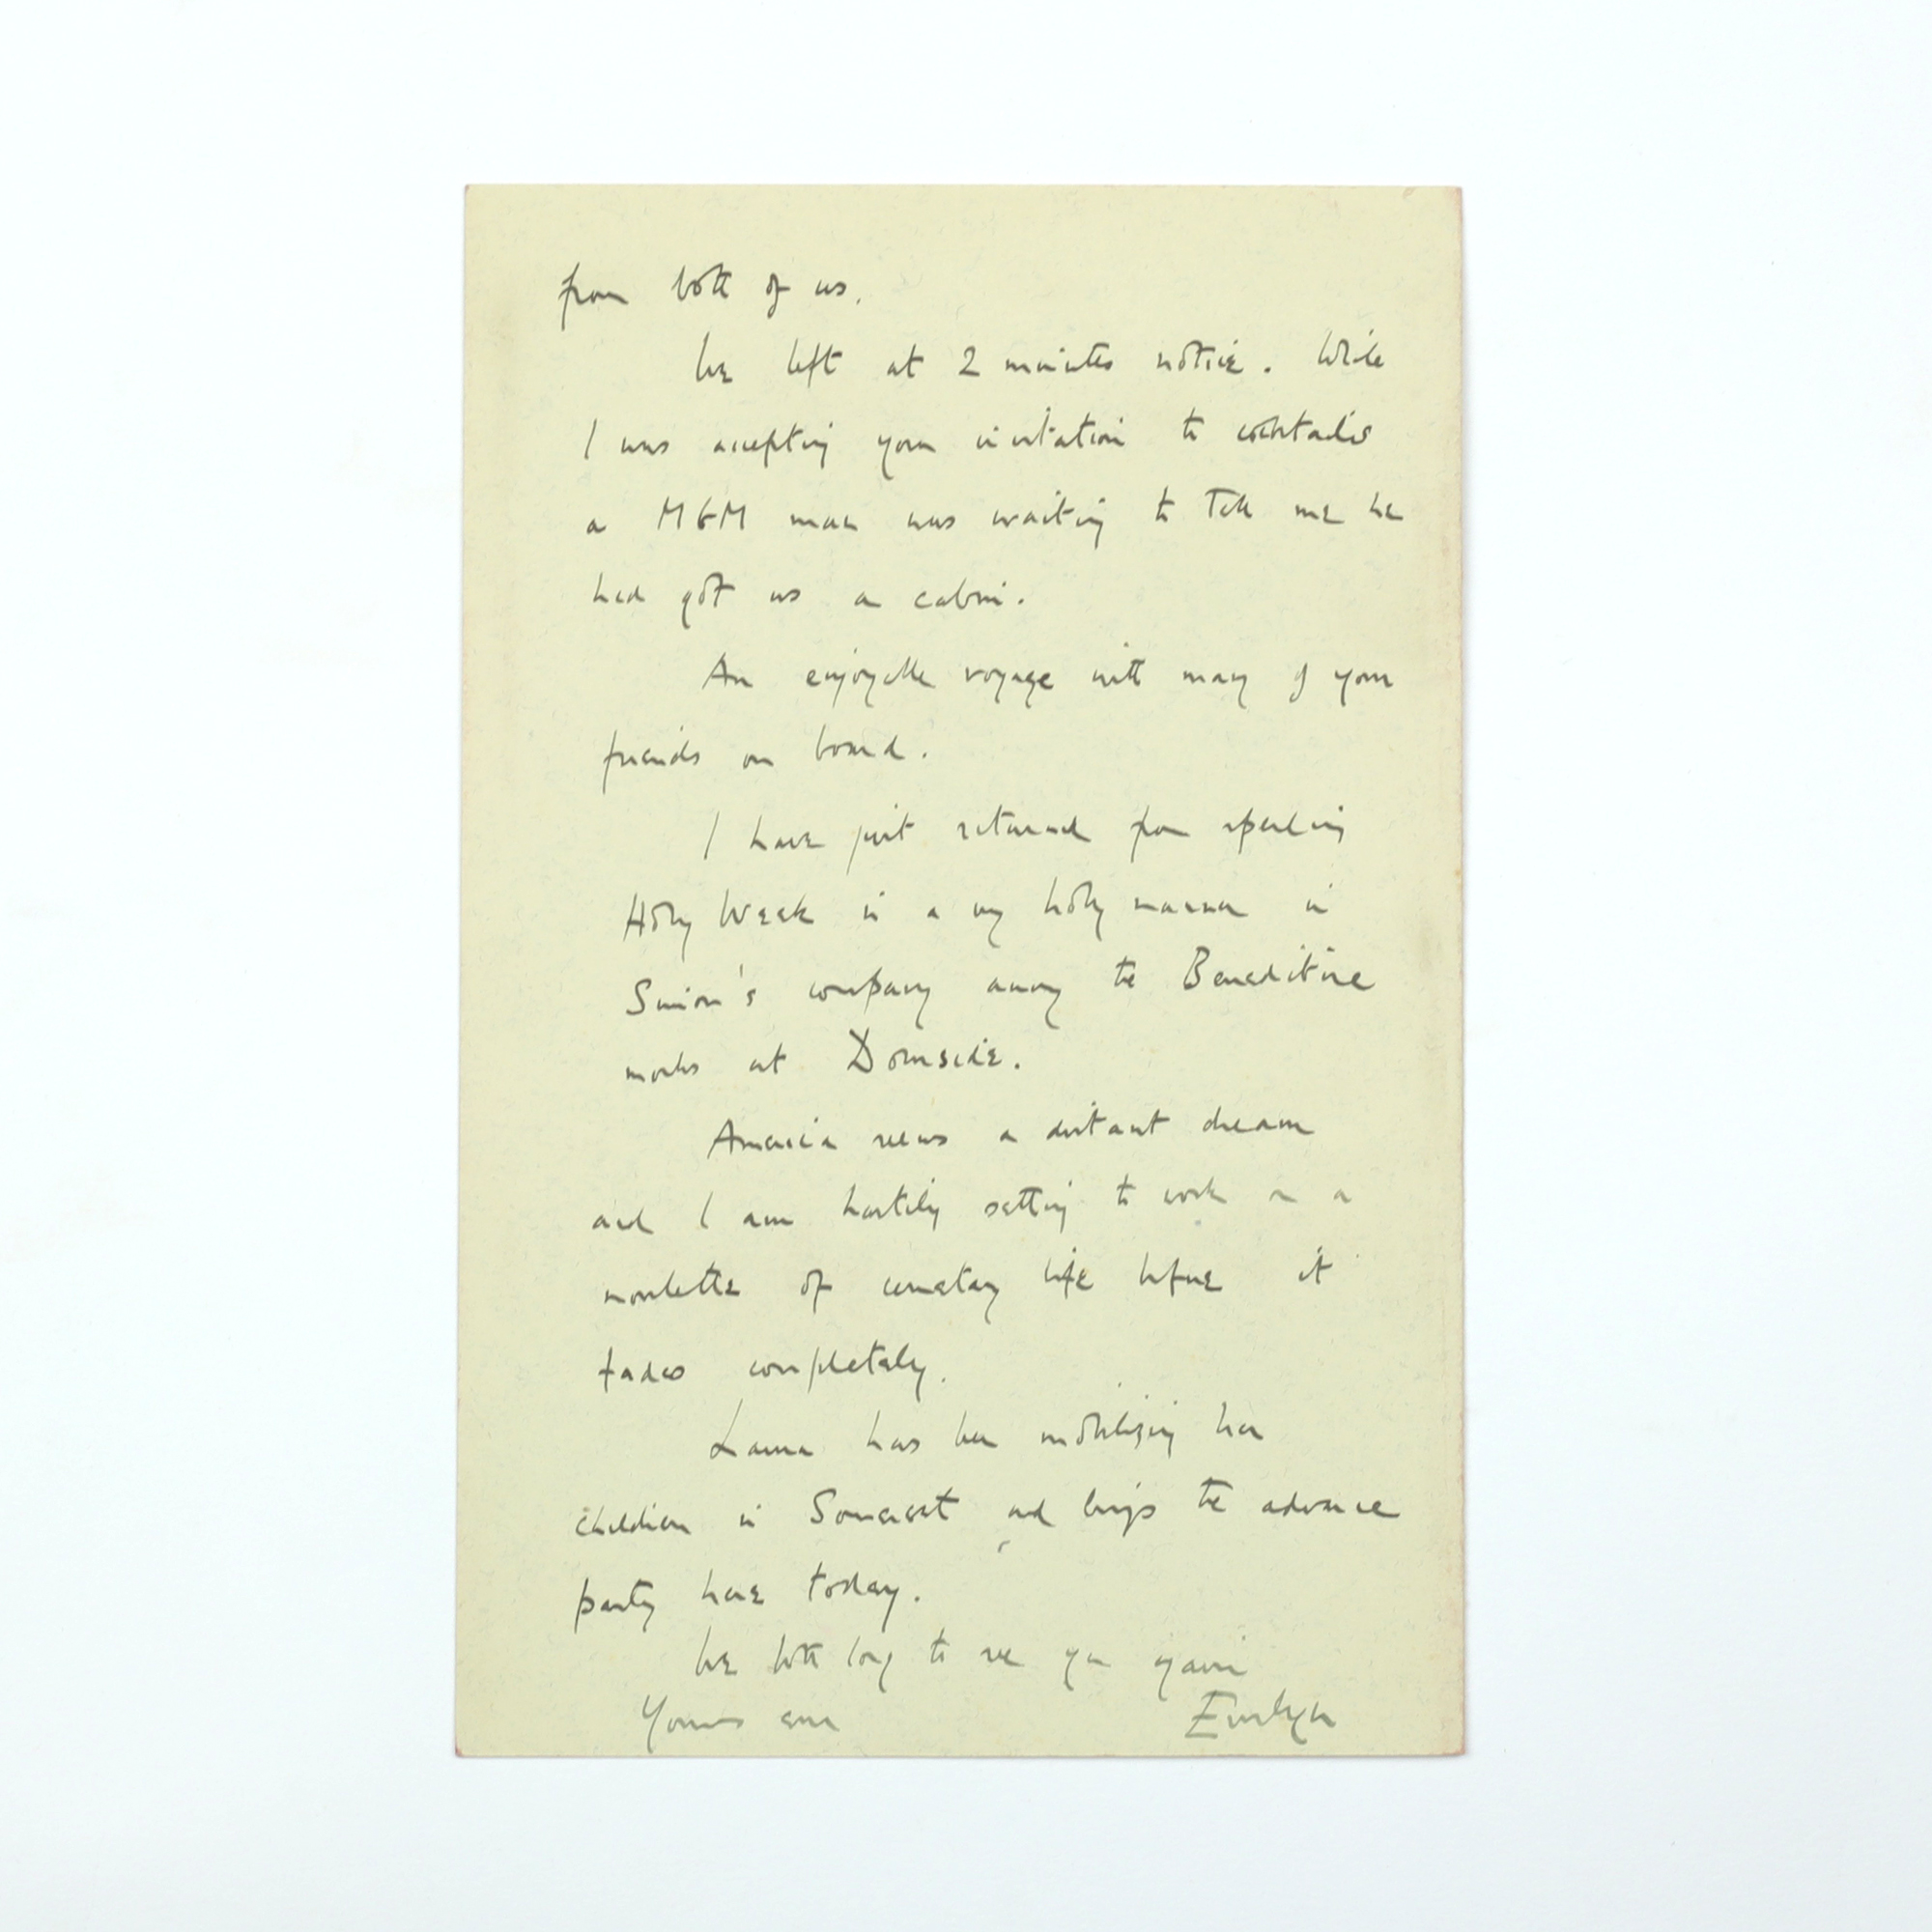 from both of us.
We left at 2 minutes notice. While
I was accepting your invitation to cocktails
a MGM man was waiting to tell me he
had got us a cabin.
An enjoyable voyage with many of your
friends on board.
I have just returned from spending
Holy Week in a very holy manner in
Simon's company among the Benedictine
monks at Downside.
America seems a distant dream
and I am hastily setting to work on a
novelette of cemetary life before it
fades completely.
Laura has been mobilizing her
children in Somerset and brings the advance
party here today.
We both long to see you again
Yours ever Evelyn